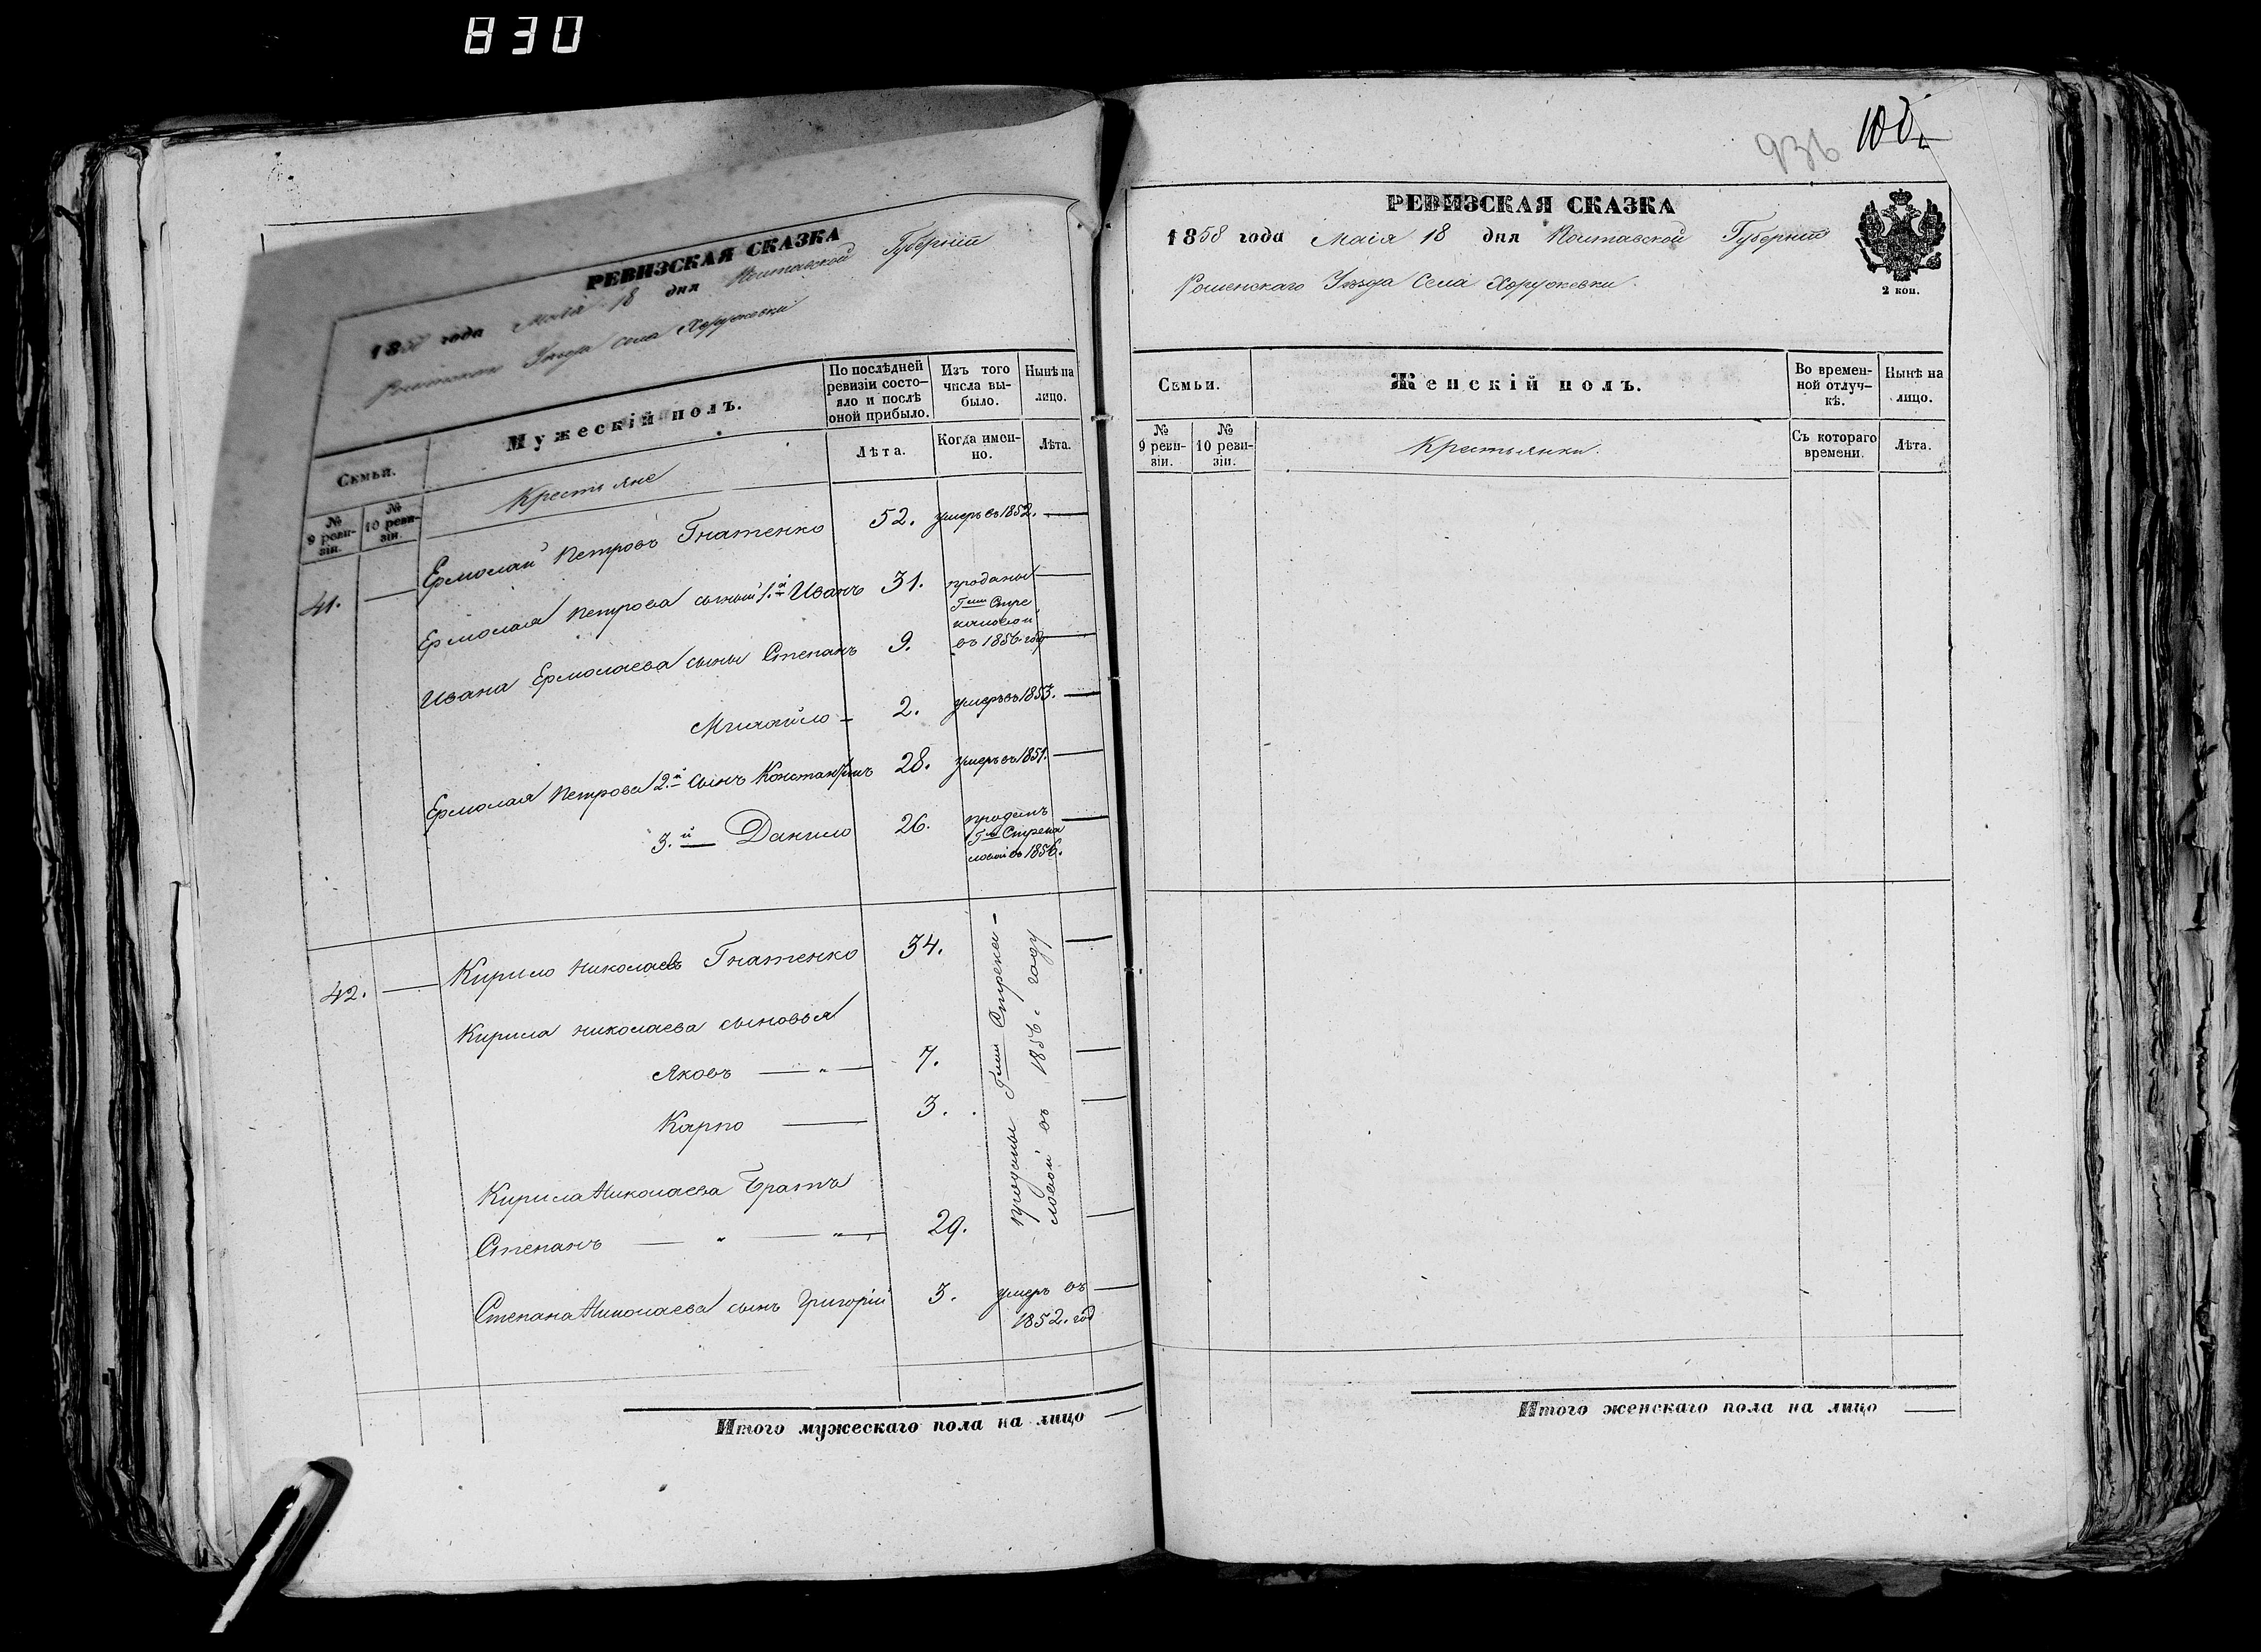 830
РЕВИЗСКАЯ СКАЗКА
1858 года Маія 18 дня Полтавской Губерніи
Роменскаго Уѣзда Села Хоружевки
Семьи.
Мужескій полъ.
По послѣдней ревизіи состо-
яло и послѣ
оной прибыло.
Изъ того
числа вы-
было.
Нынѣ на
лицо.
№
9 реви-
зіи.
№
10 реви-
зіи.
Крестьяне
Лѣта.
Когда имен-
но.
Лѣта.
41. — Ермолай Петровъ Гнатенко 52. умеръ въ 1852. —
Ермолая Петрова сыновья 1.й Иванъ 31. проданы —
Г-жи Стре
каловой
Ивана Ермолаева сыны Степанъ 9. въ 1856. год —
Михайло — 2. умеръ въ 1853. —
Ермолая Петрова 2.й сынъ Константинъ 28. умеръ въ 1851. —
3.й Данило 26. проданъ —
Г-жи Стрека
ловой въ 1856.
42. — Кирило Николаевъ Гнатенко 34. —
Кирила Николаева сыновья
Яковъ — „ — 7. —
Карпо — 3. —
Кирила Николаева братъ
Степанъ — „ — „ — 29. —
проданы Г-жи Стрека-
ловой въ 1856. году
Степана Николаева сынъ Григорій 3. умеръ въ —
1852. год
Итого мужескаго пола на лицо —
936 100.
РЕВИЗСКАЯ СКАЗКА
1858 года Маія 18 дня Полтавской Губерніи
Роменскаго Уѣзда Села Хоружевки.
2 коп.
Семьи.
Женскій полъ.
Во времен-
ной отлуч-
кѣ.
Нынѣ на
лицо.
№
9 реви-
зіи.
№
10 реви-
зіи.
Крестьянки.
Съ котораго
времени.
Лѣта.
Итого женскаго пола на лицо —